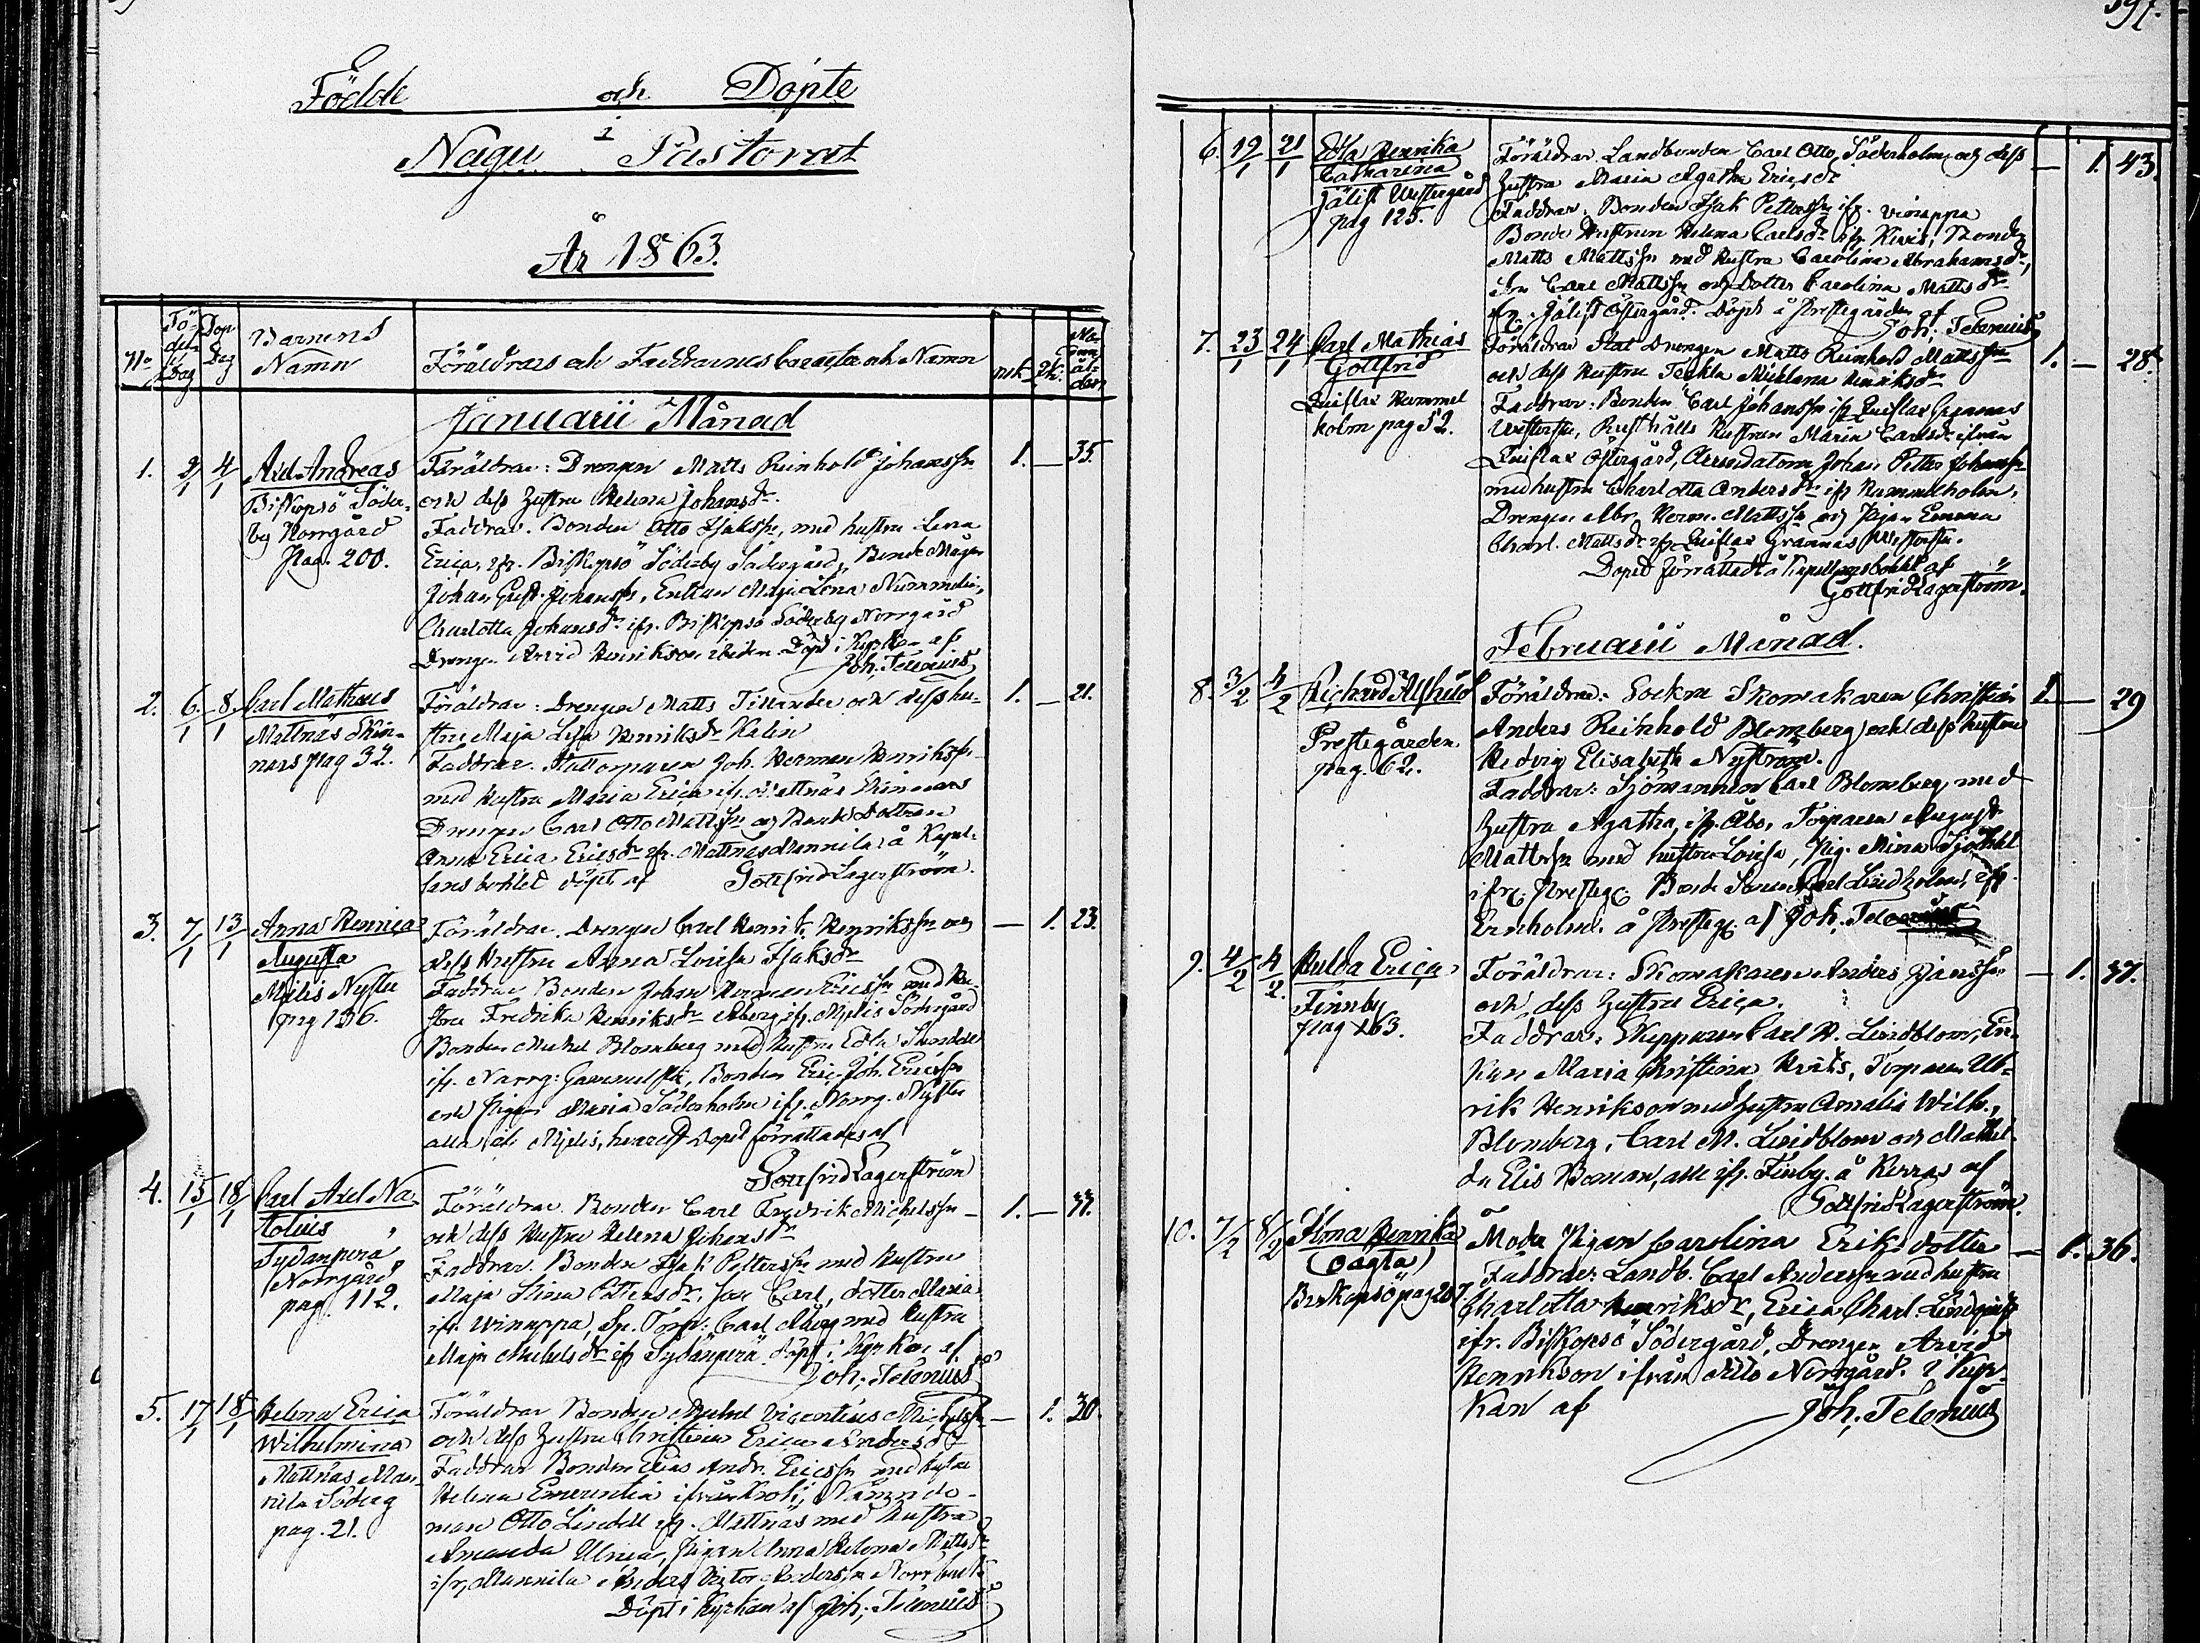 Födde och Döpte
i
Nagu Pastorat
År 1863.
No Födelse Dag Döp Dag Barnens Namn Föräldrars och Faddrarnes caracter och Namn mk. qk. Modrens ålder
Januarii Månad
1. 2/1 4/1 Axel Andreas
Biskopsö Söder-
by Norrgård
Pag. 200.
Föräldrar: Drengen Matts Reinhold Johanss:n 1. — 35.
och dess hustru Helena Johansd:r
Faddrar. Bonden Otto Isakss:n, med hustru Lena
Erica, ifr. Biskopsö Söderby Södergård, Bonde Mågen
Johan Gust. Johanss:n, Enkan Maja Lena Nummelin,
Charlotta Johansd:r ifr. Biskopsö Söderby Norrgård
Drengen Arvid Henrikson ibidem. Döpt i Kyrkan af
Joh. Telenius
2. 6/1 8/1 Carl Matheus
Mattnäs Skin-
nars pag 32.
Föräldrar: Drengen Matts Tillander och dess hu- 1. — 21.
stru Maja Lisa Henriksd:r Kalin
Faddrar. Joh. Herman Henrikss:n
med hustru Maria Erica ifr. Mattnäs Skinnars
Drengen Carl Otto Mattss:n och Bonde Dottren
Anna Erica Ericsd:r ifr. Mattnäs Mannila å Kapel-
lans bohlet döpt af Gottfrid Lagerström.
3. 7/1 13/1 Anna Henrica
Augusta
Mjelis Nystu
pag 136.
Föräldrar. Drengen Carl Henrik Henrikss:n och — 1. 23.
dess hustru Anna Lovisa Isaksd:r
Faddrar Bonden Johan Herman Ericss:n med hu-
stru Fredrika Henriksd:r Åberg ifr. Mjelis Södergård
Bonden Michel Blomberg med hustru Edla
ifr. Norrg: Gammelstu, Bonden Eric Joh. Ericss:n
och pigan Maria Söderholm ifr. Norrg. Nystu
alla i Mjelis, hvarest Dopet förrättades af
Gottfrid Lagerström
4. 15/1 18/1 Carl Axel Na-
tolius
Sydänperä
Norrgård
pag. 112.
Föräldrar. Bonden Carl Fredrik Michelss:n — 1. — 33.
och dess hustru Helena Johansd:r
Faddrar. Bonden Isak Petterss:n med hustru
Maja Stina Pettersd:r, son Carl, dotter Maria
ifr. Winuppa, Sp. Torp: Carl Åberg med hustru
Maja Michelsd:r ifr Sydänperä. Döpt i Kyrkan af
Joh. Telenius
5. 17/1 18/1 Helena Erica
Wilhelmina
Mattnäs Man-
nila Söderg
pag. 21.
Föräldrar Bonden Michel Vicentius Michelss:n — 1. 30.
och dess hustru Christina Erica Andersd:r
Faddrar Bonden Elias Andr. Ericss:n med hustru
Helena Emerentia ifrån Krok, Nämnde-
man Otto Lindell ifr. Mattnäs med hustru
Amanda Ulrica, Pigan Anna Helena Mattsd:r
ifr. Mannila Anders Victor Anderss:n Norrbacka
Döpt i Kyrkan af Joh. Telenius
6. 19/1 21/1 Edla Henrika
Catharina
Jälist Westergård
pag 125.
Föräldrar. Landbonden Carl Otto Söderholm och dess — 1. 43.
hustru Maria Agatha Ericsd:r
Faddrar. Bonden Isak Petterss:n ifr. Vinuppa
Bonde Hustrun Helena Carlsd:r ifr. Kivis, Bonden
Matts Mattss:n med hustru Carolina Abrahamsd:r,
Carl Mattss:n och Dotter Carolina Mattsd:r
ifr. Jälist Östergård. Döpt å Prestegården af
Joh. Telenius
7. 23/1 24/1 Carl Mathias
Gottfrid
Qviflax Hammel
holm pag 52.
Föräldrar Stat Drengen Matts Reinhold Mattss:n 1. — 28.
och dess hustru Teckla Michlena Henriksd:r
Faddrar: Bonden Carl Johanss:n ifr Qviflax Grannas
Westerstu, Rusthålls hustrun Maria Carlsd:r ifrån
Qviflax Östergård, Arrendatorn Johan Petter Johanss:n
med hustru Charlotta Andersd:r ifr Hammelholm,
Drengen Abr. Herm. Mattss:n och Pigan Emma
Charl. Mattsd:r ifr. Qviflax Grannas Westerstu.
Dopet förrättadt å Kapellansbohlet af
Gottfrid Lagerström.
Februarii Månad.
8. 3/2 4/2 Richard Alfhild
Prestegården
pag. 62.
Föräldrar: Sockne Skomakaren Christian 1. — 29
Anders Reinhold Blomberg och dess hustru
Hedvig Elisabeth Nyström.
Faddrar: Sjömannen Carl Blomberg med
hustru Agatha, ifr. Åbo, Torparen August
Mattss:n med hustru Lovisa, Pig. Mina Sjödahl
ifr. Presteg. Bonde Sonen Carl Lindholm, ifr.
Ernholm. å Presteg. af Joh. Telenius
9. 4/2 4/2. Hulda Erica
Finnby
pag 163.
Föräldrar: Skomakaren Anders Janss:n — 1. 37.
och dess hustru Erica.
Faddrar: Skepparen Carl W. Lindblom, En-
kan Maria Christina Kvist, Torparen Ul-
rik Henrikson med hustru Amalia Wilh.
Blomberg, Carl M. Lindblom och Mathil-
da Elis Boman, alla ifr. Finby. å Kerras af
Gottfrid Lagerström.
10. 7/2 8/2 Alma Henrika
(oägta)
Biskopsö pag 207
Moder Pigan Carolina Eriksdotter — 1. 36.
Faddrar: Landb. Carl Anderss:n med hustru
Charlotta Henriksd:r, Erica Charl. Lindqvist
ifr. Biskopsö Södergård, Drengen Arvid
Henrikson ifrån Norrgård. i Kyr-
kan af Joh. Telenius